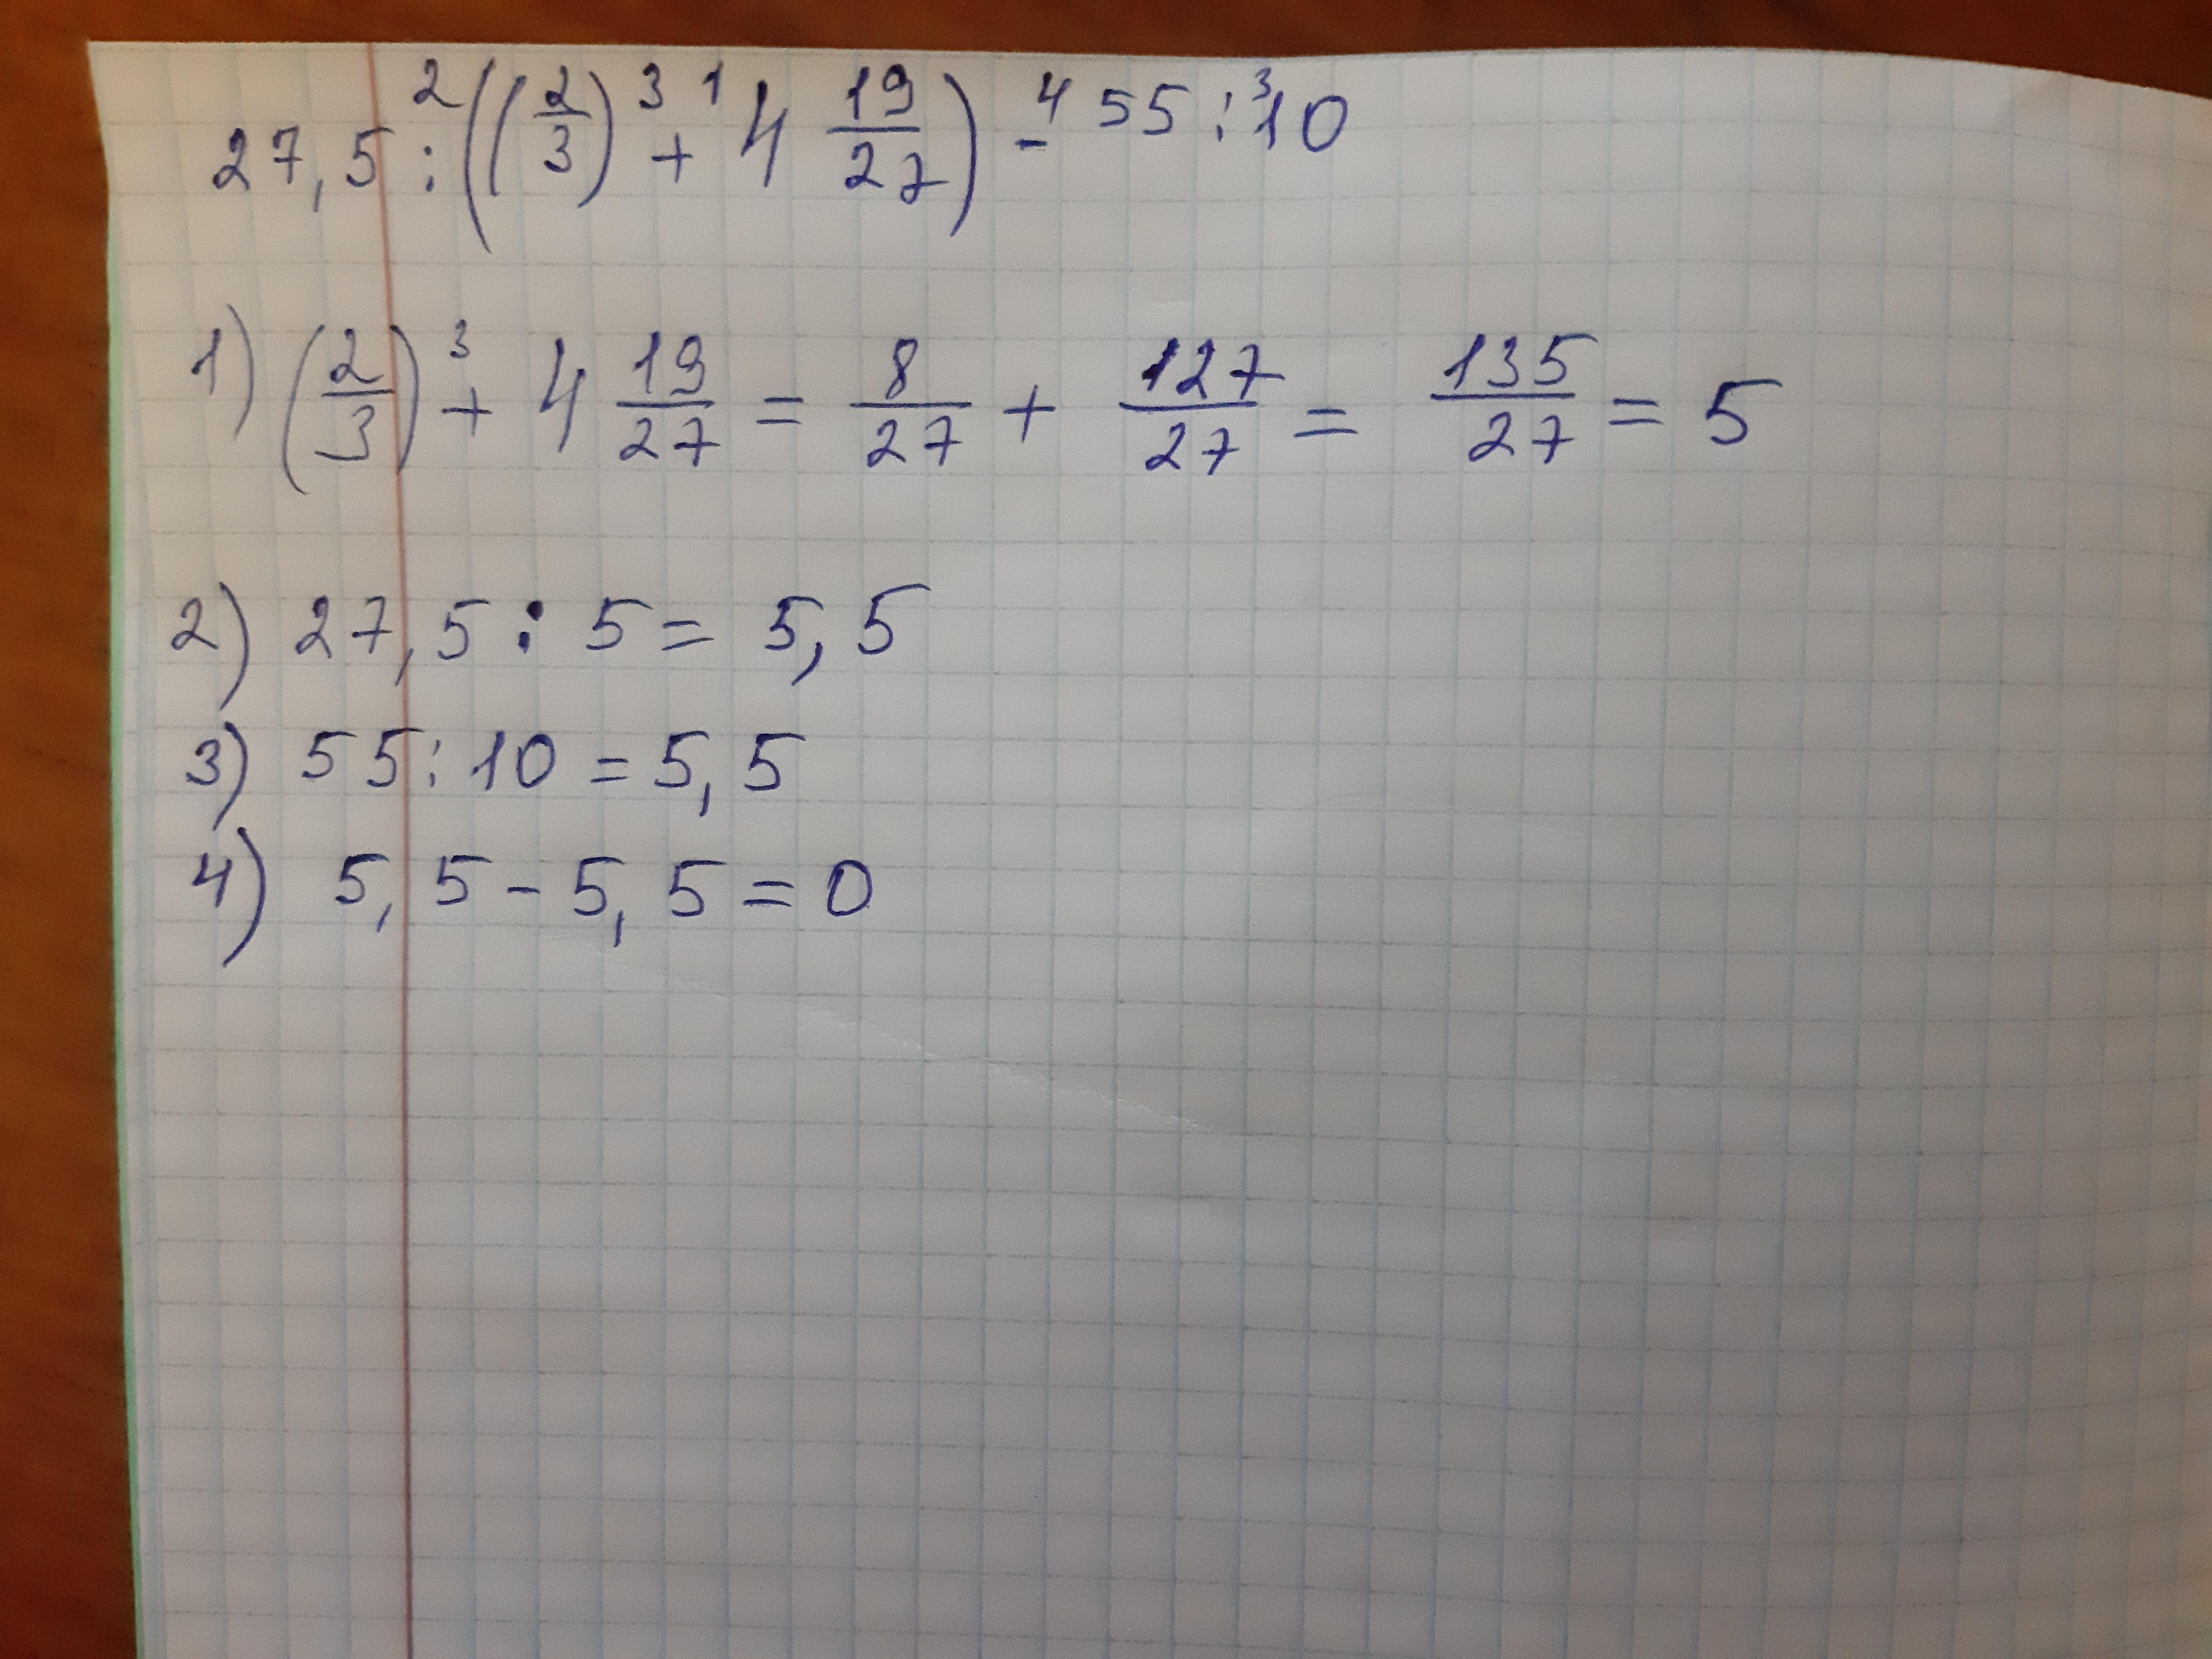 27,5 :² ((2/3)³ +¹ 4 19/27) -⁴ 55 :³ 10
1) (2/3)³ + 4 19/27 = 8/27 + 127/27 = 135/27 = 5
2) 27,5 : 5 = 5,5
3) 55 : 10 = 5,5
4) 5,5 - 5,5 = 0